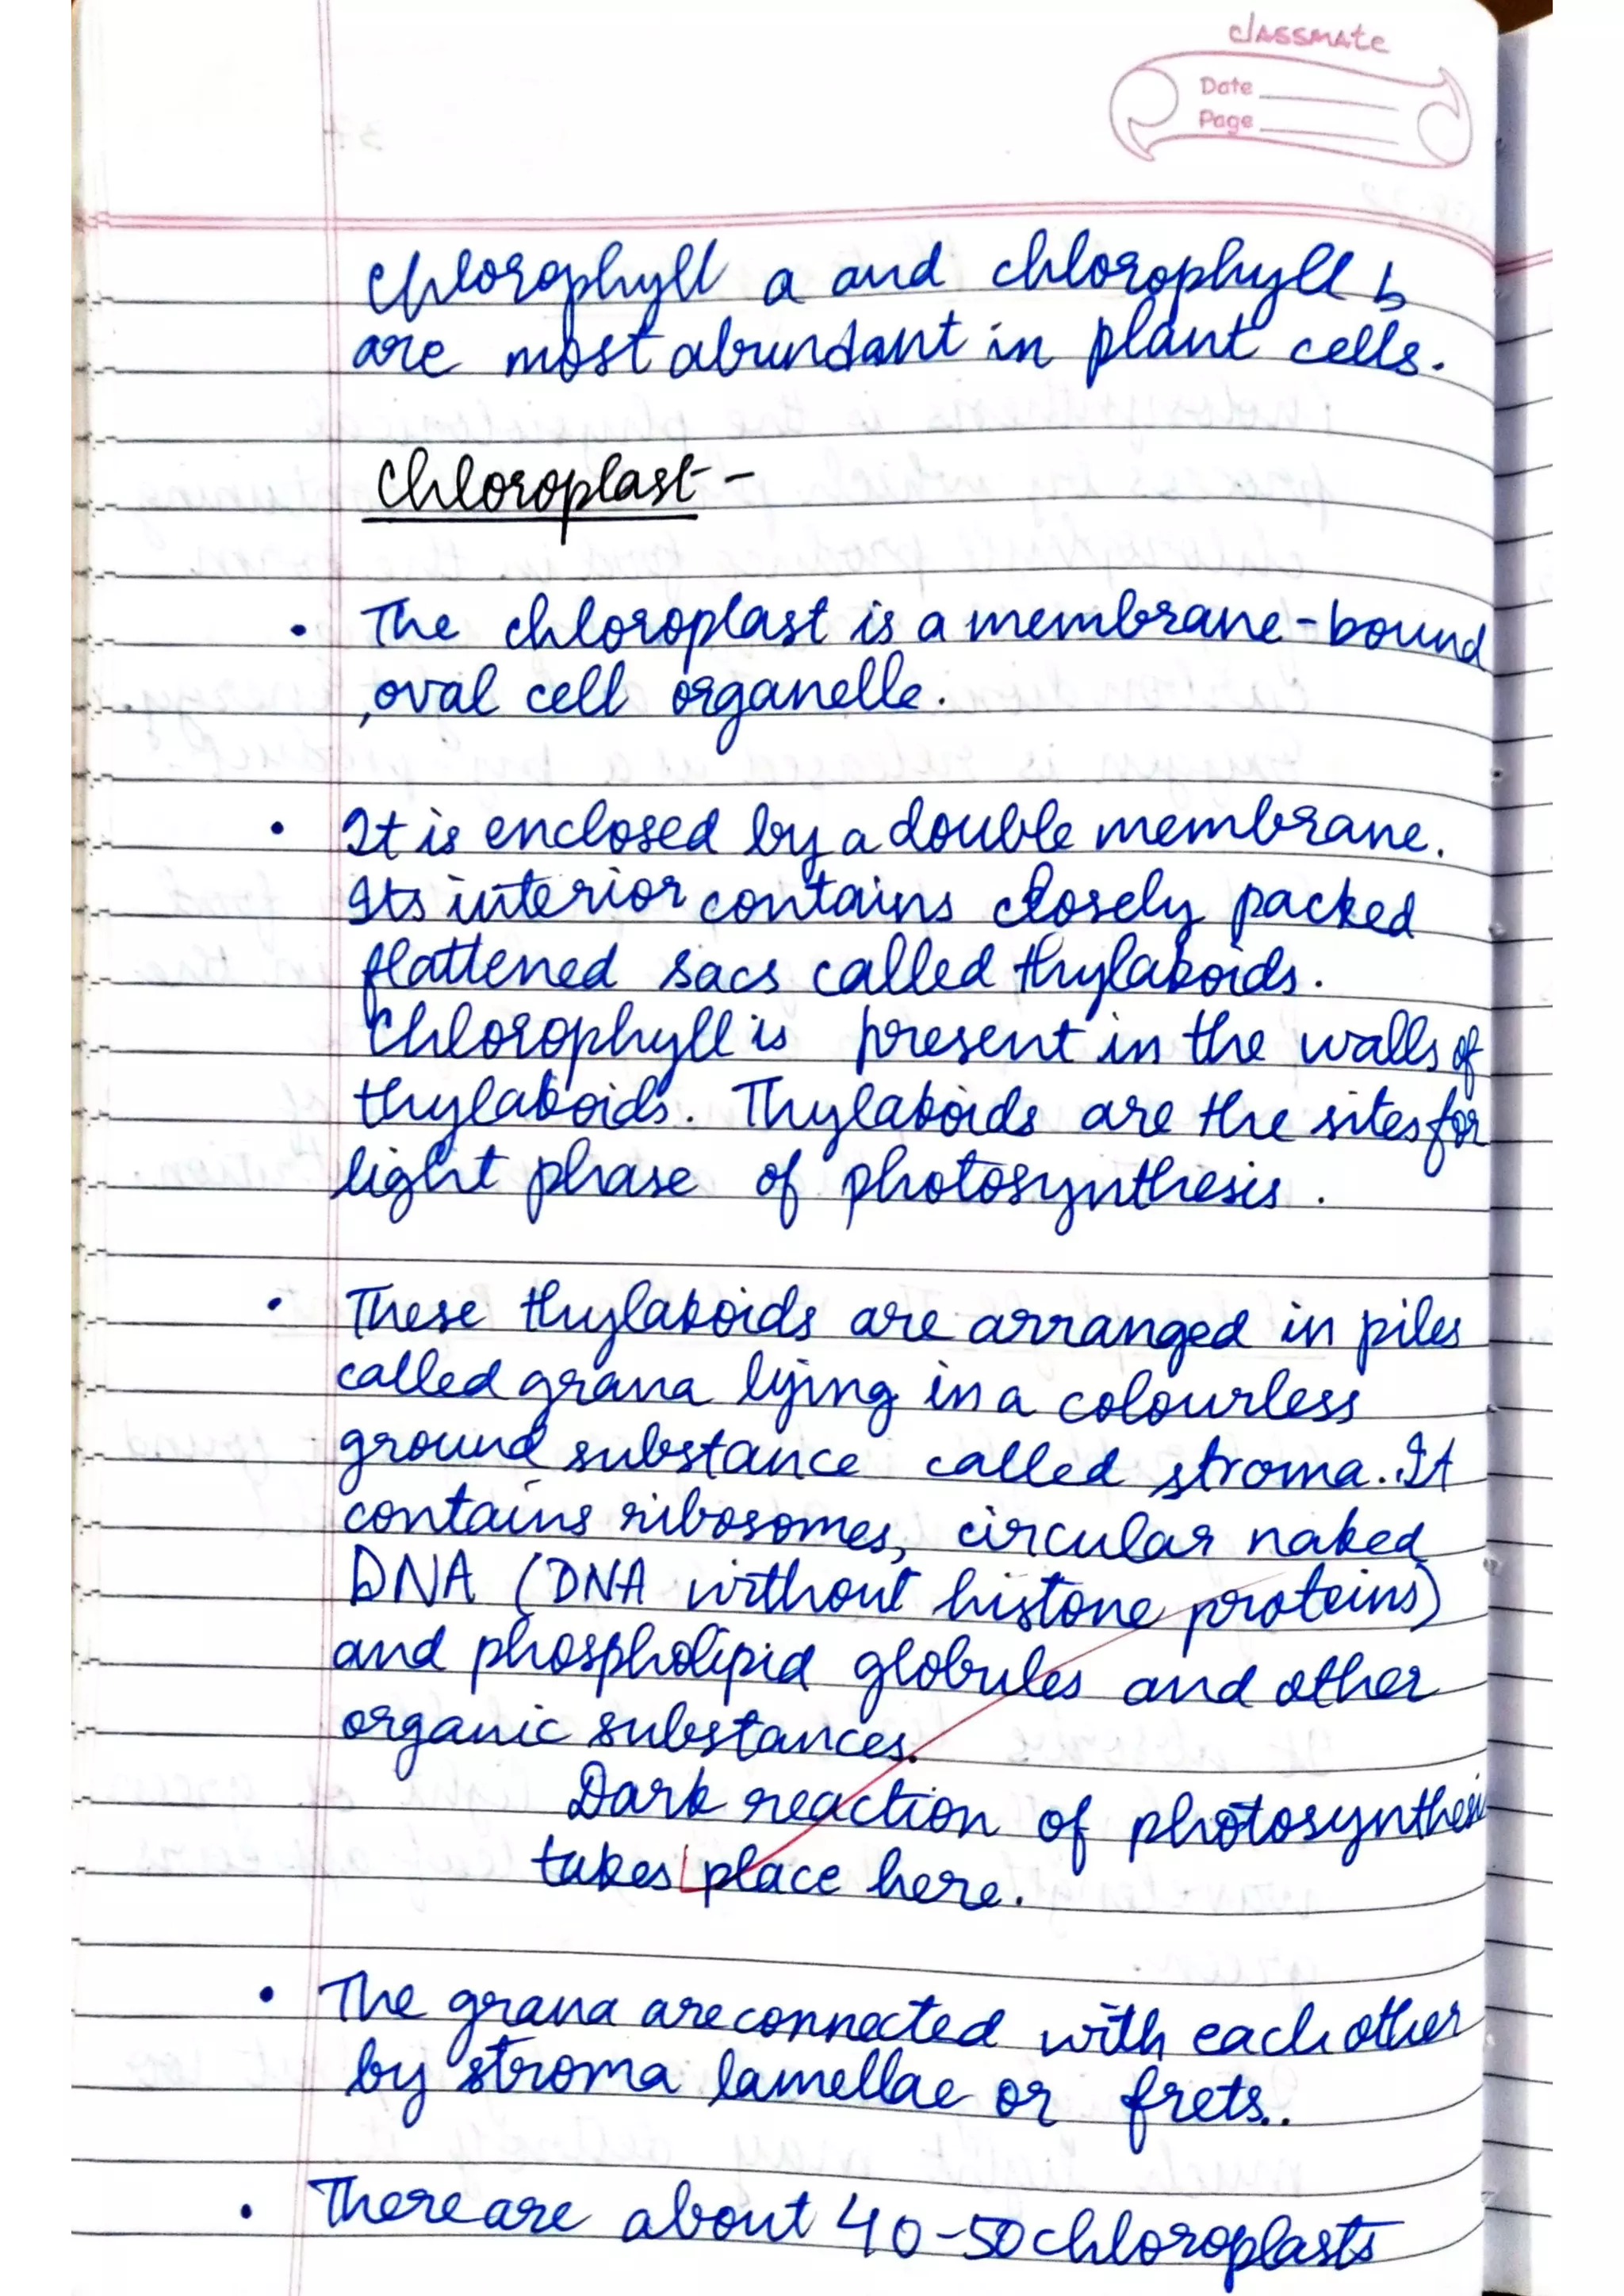 classmate
Date
Page
Chlorophyll a and chlorophyll b
are most abundant in plant cells.
Chloroplast -
• The chloroplast is a membrane-bound
, oval cell organelle.
• It is enclosed by a double membrane.
Its interior contains closely packed
flattened sacs called thylakoids.
Chlorophyll is present in the walls of
thylakoids. Thylakoids are the sites for
light phase of photosynthesis.
• These thylakoids are arranged in piles
called grana lying in a colourless
ground substance called stroma. It
contains ribosomes, circular naked
DNA (DNA without histone proteins)
and phospholipid globules and other
organic substances.
Dark reaction of photosynthesis
takes place here.
• The grana are connected with each other
by stroma lamellae or frets..
• There are about 40-50 chloroplasts